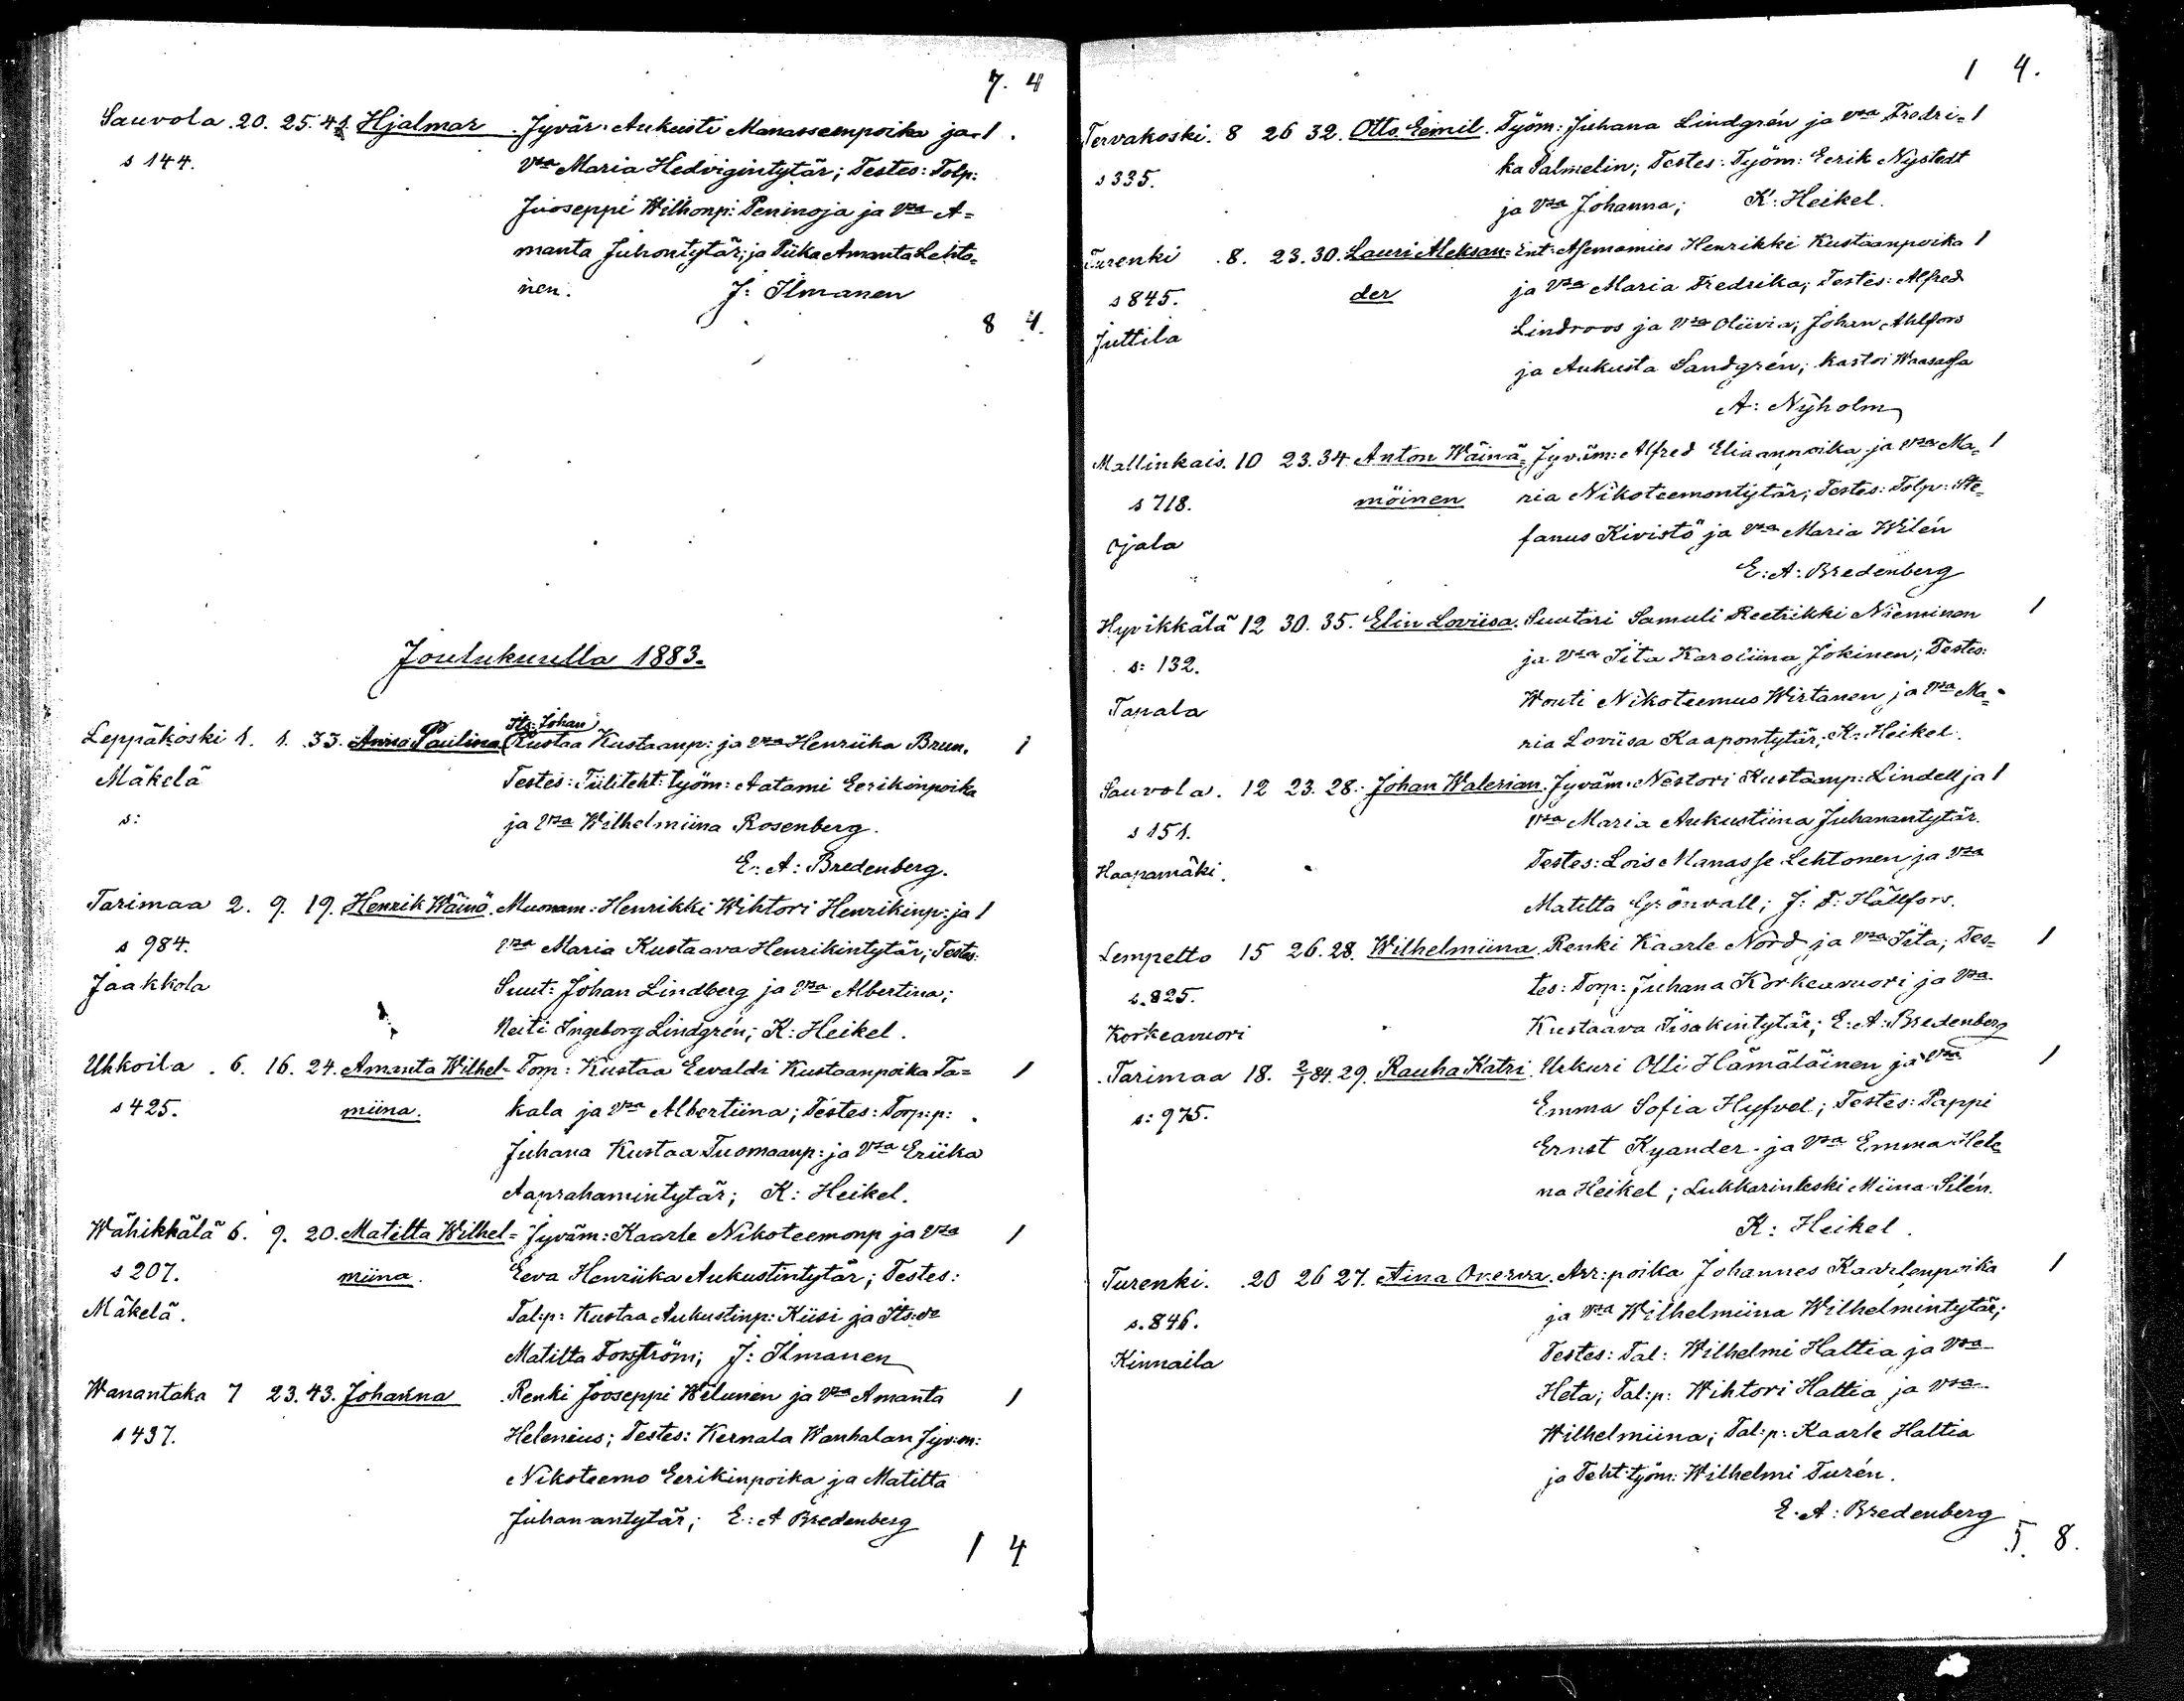 7. 4
Sauvola. 20. 25. 41. Hjalmar. Jyvär: Aukusti Manasseenpoika ja 1.
s 144. vsa Maria Hedvigintytär; Testes: Tolp:
Juoseppi Wilhonp: Peninoja ja vsa A=
manta Juhontytär; ja Piika Amanta Lehto=
nen. J: Ilmanen
8 4.
Joulukuulla 1883.
Its: Johan
Leppäkoski 1. 1. 33. Anna Paulina Kustaa Kustaanp: ja vsa Henriika Brun. 1
Mäkelä Testes: Tiiliteht: työm: Aatami Eerikinpoika
s: ja vsa Wilhelmiina Rosenberg.
E: A: Bredenberg.
Tarimaa 2. 9. 19. Henrik Wäinö. Muonam: Henrikki Wihtori Henrikinp: ja 1
s 984. vsa Maria Kustaava Henrikintytär; Testes:
Jaakkola Suut: Johan Lindberg ja vsa Albertina;
Neiti Ingeborg Lindgrén; K: Heikel.
Uhkoila. 6. 16. 24. Amanta Wilhel= Torp: Kustaa Eevaldi Kustaanpoika Ta= 1
s 425. miina. kala ja vsa Albertiina; Testes: Torp:p:
Juhana Kustaa Tuomaanp: ja vsa Eriika
Aaprahamintytär; K: Heikel.
Wähikkälä 6. 9. 20. Matilta Wilhel= Jyväm: Kaarle Nikoteemonp ja vsa 1
s 207. miina. Eeva Henriika Aukustintytär; Testes:
Mäkelä. Tal:p: Kustaa Aukustinp: Kiisi ja Its:va
Matilta Forsström; J: Ilmanen
Wanantaka 7 23. 43. Johanna Renki Jooseppi Welunen ja vsa Amanta 1
s 437. Helenius; Testes: Kernala Wanhalan Jyv:m:
Nikoteemo Eerikinpoika ja Matilta
Juhanantytär; E: A Bredenberg
1 4
1 4.
Tervakoski. 8 26 32. Otto Eemil. Työm: Juhana Lindgrén ja vsa Fredri= 1
s 335. ka Palmelin; Testes: Työm: Eerik Nystedt
ja vsa Johanna; K: Heikel.
Turenki. 8. 23. 30. Lauri Aleksan= Ent: Asemamies Henrikki Kustaanpoika 1
s 845. der ja vsa Maria Fredrika; Testes: Alfred
Juttila Lindroos ja vsa Oliivia; Johan Ahlfors
ja Aukusta Sandgrén; kastoi Waasassa
A: Nyholm
Mallinkais. 10 23. 34. Anton Wäinä= Jyväm: Alfred Eliaanpoika ja vsa Ma= 1
s 718. möinen ria Nikoteemontytär; Testes: Tolp: Ste=
Ojala fanus Kivistö ja vsa Maria Wilén
E: A: Bredenberg
Hyvikkälä 12 30. 35. Elin Loviisa. Suutari Samuli Reetrikki Nieminen 1
s: 132. ja vsa Iita Karoliina Jokinen; Testes:
Tapala Wouti Nikoteemus Wirtanen ja vsa Ma=
ria Loviisa Kaapontytär; K: Heikel.
Sauvola. 12 23. 28. Johan Walerian. Jyväm: Nestori Kustaanp: Lindell ja 1
s 151. vsa Maria Aukustiina Juhanantytär.
Haapamäki. Testes: Lois Manasse Lehtonen ja vsa
Matilta Grönvall; J: F: Hällfors.
Lempelto 15 26. 28. Wilhelmiina. Renki Kaarle Nord ja vsa Iita; Tes= 1
s. 825. tes: Torp: Juhana Korkeavuori ja vsa
Korkeavuori Kustaava Iisakintytär; E: A: Bredenberg
Tarimaa 18. 2/1 84. 29. Rauha Katri. Urkuri Olli Hämäläinen ja vsa 1
s: 975. Emma Sofia Hyfvel; Testes: Pappi
Ernst Kyander ja vsa Emma Hele=
na Heikel; Lukkarinleski Miina Silén.
K: Heikel.
Turenki. 20 26 27. Aina Onerva. Arr: poika Johannes Kaarlenpoika 1
s. 846. ja vsa Wilhelmiina Wilhelmintytär;
Kinnaila Testes: Tal: Wilhelmi Haltia ja vsa
Heta; Tal:p: Wihtori Haltia ja vsa
Wilhelmiina; Tal:p: Kaarle Haltia
ja Teht:työm: Wilhelmi Turén.
E: A: Bredenberg
5. 8.